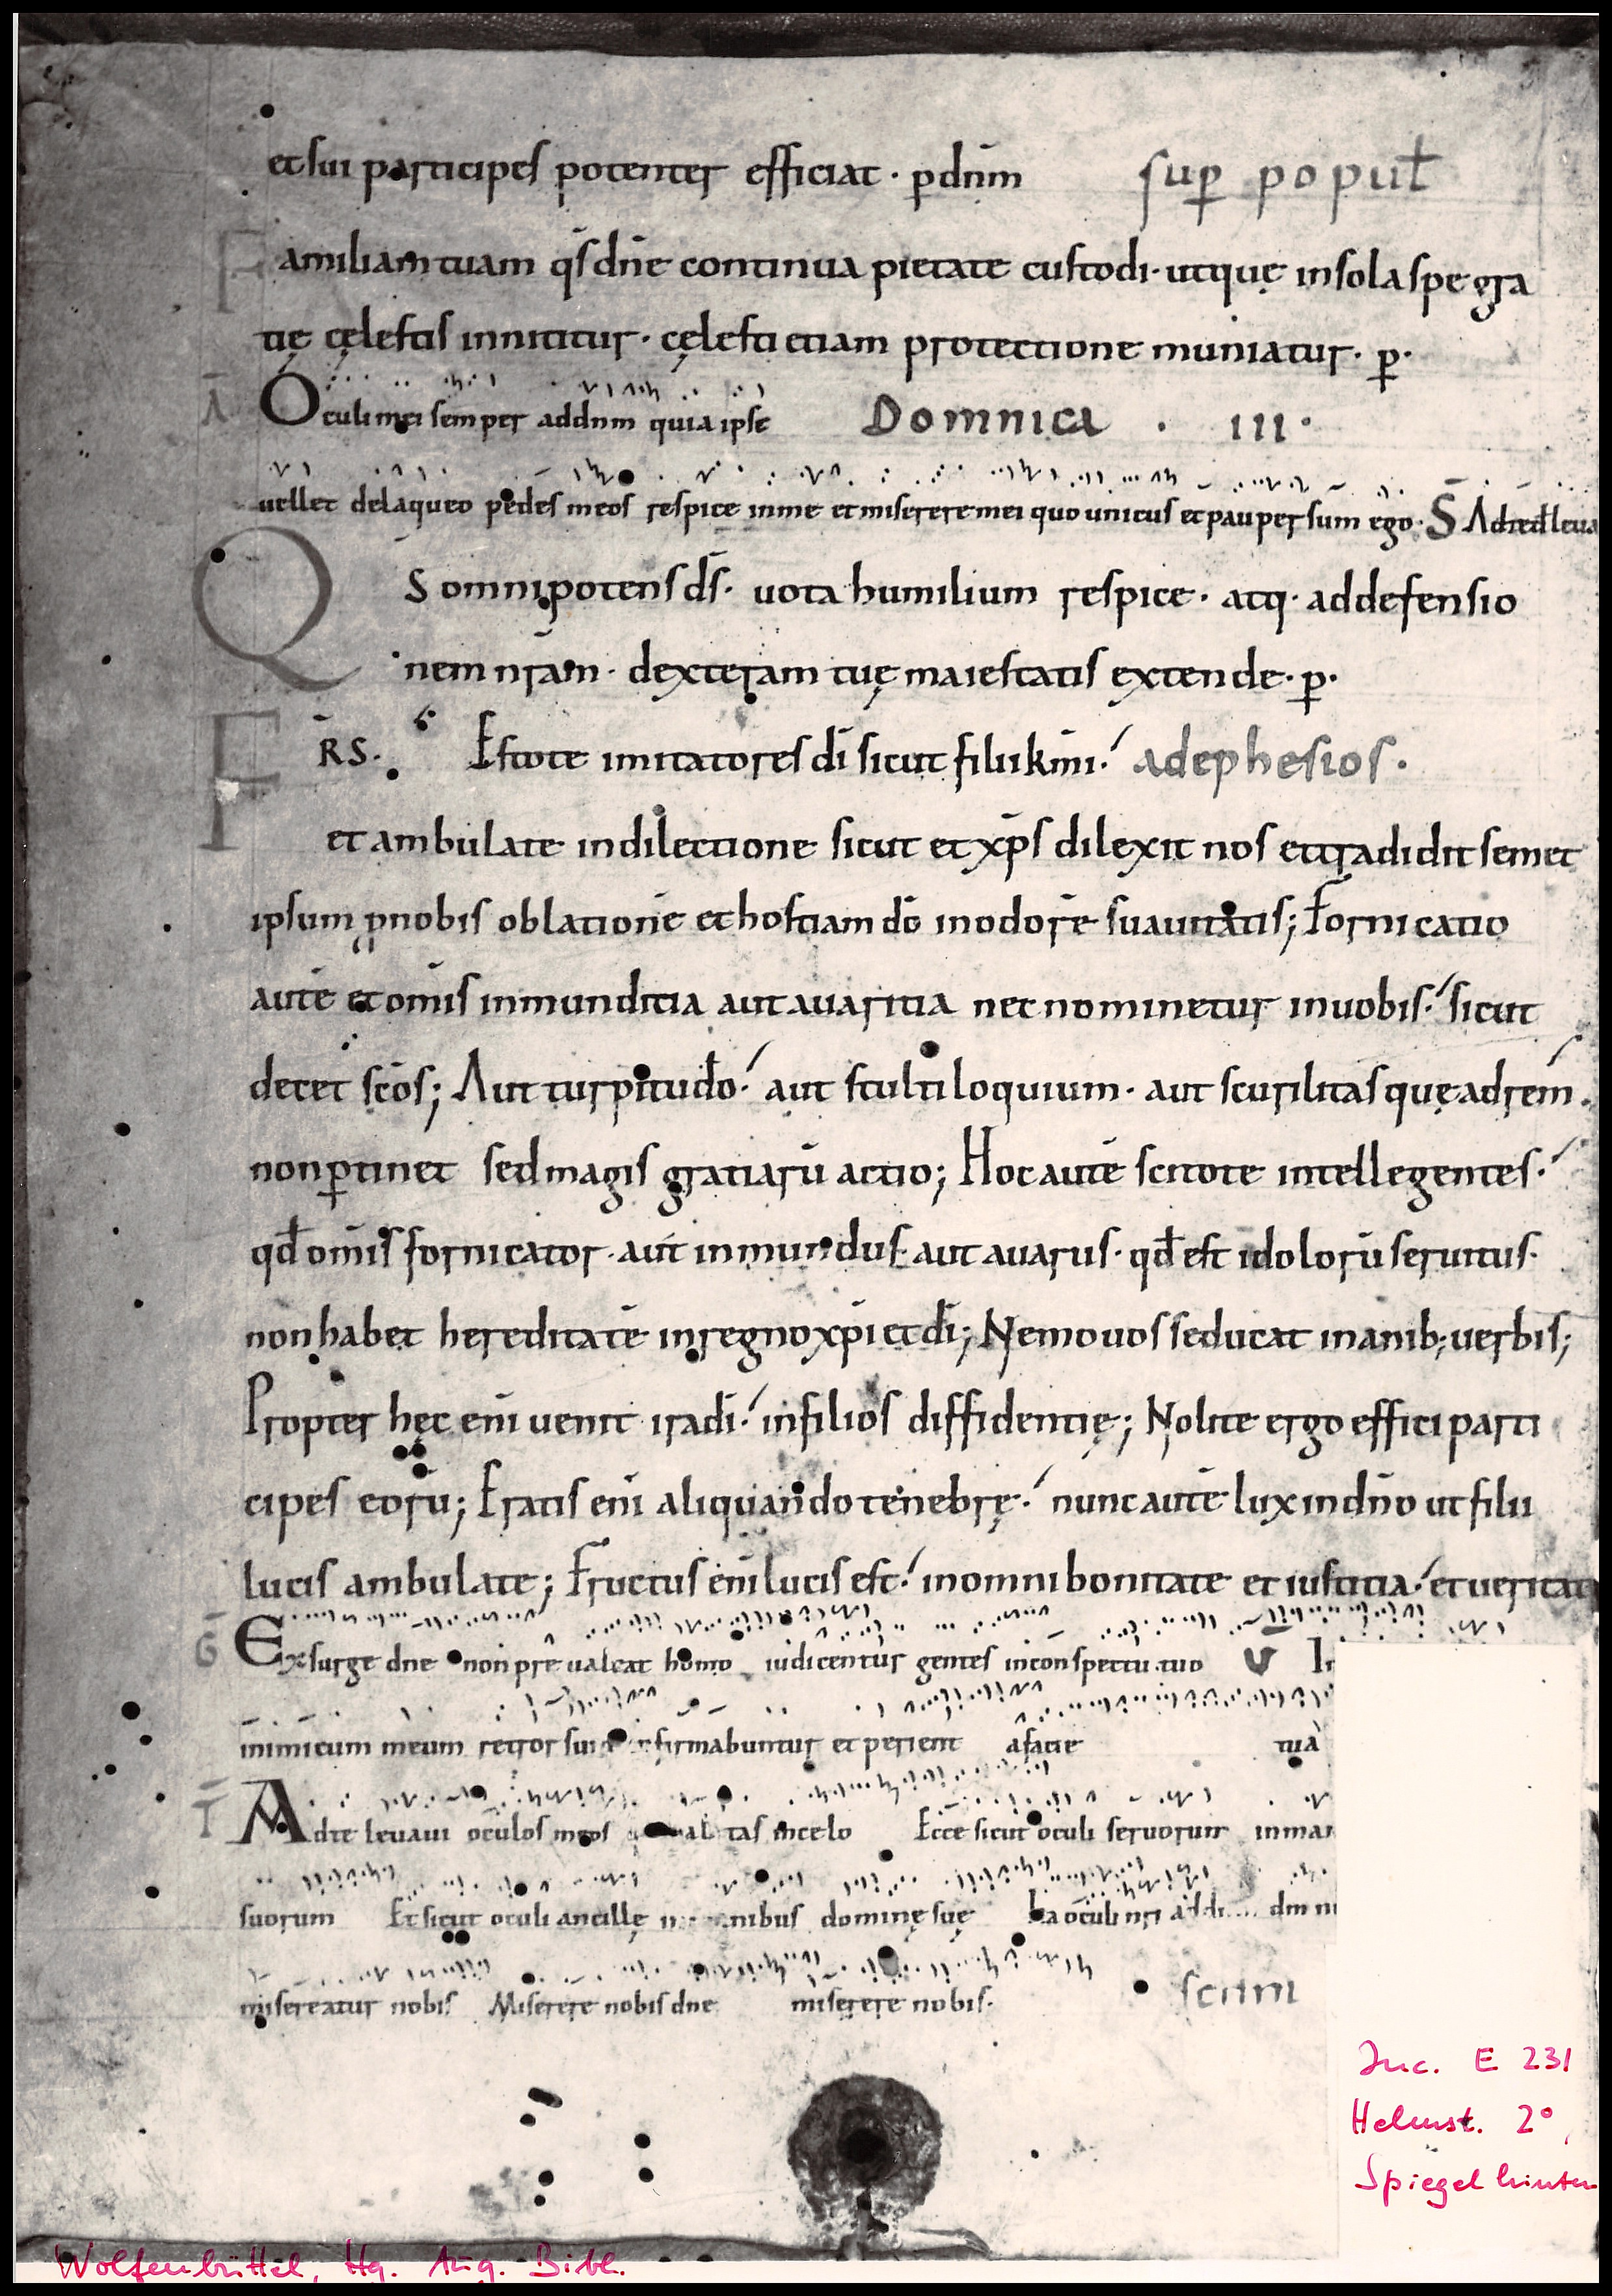 et sui participes potenter efficiat · p dn̄m sup̄ popul̄
Familiam tuam q̄s dn̄e continua pietate custodi · utquę in sola spe gra
tię cęlestis innititur · cęlesti etiam protectione muniatur · p̱ ·
Ā Oculi mei semper ad dnm quia ipse Domnica · III ·
uellet de laqueo pedes meos respice in me et miserere mei quo unicus et pauper sum ego · S̄ Ad te d̄ leua
Q̄S omnipotens ds̄ · uota humilium respice · atq · ad defensio
nem nr̄am · dexteram tuę maiestatis extende · p̱ ·
FR̄S · Estote imitatores dī sicut filii km̄i · ad ephesios ·
et ambulate in dilectione sicut et xp̄s dilexit nos et tradidit semet
ipsum p nobis oblationē et hostiam dō in odorē suauitatis; Fornicatio
autē et om̄is inmunditia aut auaritia nec nominetur in uobis · sicut
decet sc̄os; Aut turpitudo · aut stultiloquium · aut scurilitas quę ad rem̄ ·
non p̱tinet sed magis gratiarū actio; Hoc autē scitote intellegentes ·
qd̄ om̄is fornicator · aut inmundus aut auarus · qd̄ est idolorū seruitus ·
non habet hereditatē in regno xp̄i et dī; Nemo uos seducat inanib; uerbis;
Propter hęc eni̅ uenit ira dī · in filios diffidentię; Nolite ergo effici parti
cipes eorū; Eratis eni̅ aliquando tenebrę · nunc autē lux in dn̄o ut filii
lucis ambulate; Fructus eni̅ lucis est · in omni bonitate et iustitia · et ueritat
Ḡ Exsurge dne non preualeat homo iudicentur gentes in conspectu tuo V̄ In
inimicum meum retrorsum infirmabuntur et perient a facie tua
T̄ Ad te leuaui oculos meos qui habitas in celo Ecce sicut oculi seruorum in man
suorum Et sicut oculi ancillę in manibus dominę suę Ita oculi nri ad dnm dm n
misereatur nobis Miserere nobis dne miserere nobis · scd̄m
Inc. E 231
Helmst. 2°,
Spiegel hinten
Wolfenbüttel, Hg. Aug. Bibl.